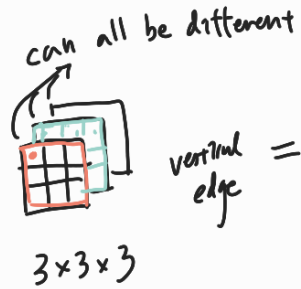 can all be different
vertical =
edge
3×3×3